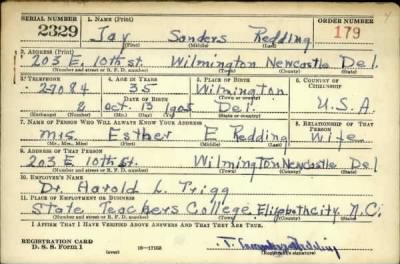 SERIAL NUMBER 1. NAME (Print) ORDER NUMBER
2329 Jay Sanders Redding 179
(First) (Middle) (Last)
2. ADDRESS (Print)
203 E. 10th St. Wilmington Newcastle Del.
(Number and street or R. F. D. number) (Town) (County) (State)
3. TELEPHONE 4. AGE IN YEARS 5. PLACE OF BIRTH 6. COUNTRY OF CITIZENSHIP
27084 35 Wilmington
DATE OF BIRTH (Town or county)
2 Oct. 13 1905 Del. U.S.A.
(Exchange) (Number) (Mo.) (Day) (Yr.) (State or country)
7. NAME OF PERSON WHO WILL ALWAYS KNOW YOUR ADDRESS 8. RELATIONSHIP OF THAT PERSON
Mrs. Esther E Redding Wife
(Mr., Mrs., Miss) (First) (Middle) (Last)
9. ADDRESS OF THAT PERSON
203 E 10th St. Wilmington Newcastle Del
(Number and street or R. F. D. number) (Town) (County) (State)
10. EMPLOYER'S NAME
Dr. Harold L. Trigg
11. PLACE OF EMPLOYMENT OR BUSINESS
State Teachers College, Elizabeth City N.C.
(Number and street or R. F. D. number) (Town) (County) (State)
I AFFIRM THAT I HAVE VERIFIED ABOVE ANSWERS AND THAT THEY ARE TRUE.
REGISTRATION CARD
D. S. S. FORM 1 (over) Redding